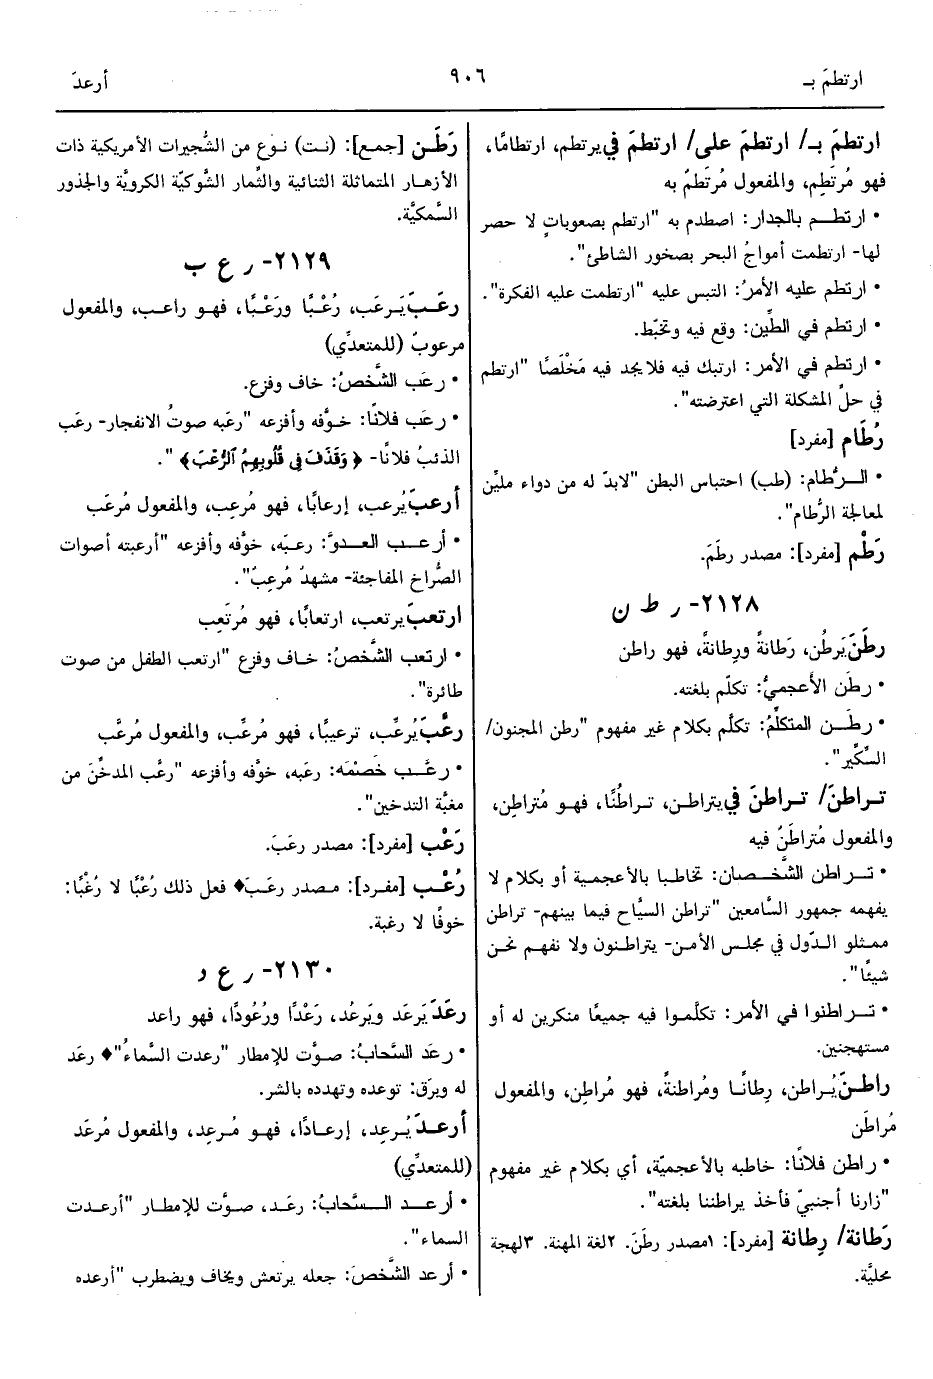 ارتطمَ بـ
٩٠٦
أرعدَ
ارتطمَ بـ/ ارتطمَ على/ ارتطمَ في يرتطم، ارتطامًا،
فهو مُرتَطِم، والمفعول مُرتَطمٌ به
• ارتطــم بالجدار: اصطدم به "ارتطم بصعوباتٍ لا حصر
لها- ارتطمت أمواجُ البحر بصخور الشاطئ".
• ارتطم عليه الأمرُ: التبس عليه "ارتطمت عليه الفكرة".
• ارتطم في الطِّين: وقع فيه وتخبّط.
• ارتطم في الأمر: ارتبك فيه فلا يجد فيه مَخْلَصًا "ارتطم
في حلِّ المشكلة التي اعترضته".
رُطَام [مفرد]
• الــرُّطام: (طب) احتباس البطن "لابدّ له من دواء مليِّن
لمعالجة الرُّطام".
رَطْم [مفرد]: مصدر رطَمَ.
٢١٢٨- ر ط ن
رطَنَ يَرطُن، رَطانةً ورِطانةً، فهو راطن
• رطَن الأعجميُّ: تكلّم بلغته.
• رطَــن المتكلِّمُ: تكلَّم بكلام غير مفهوم "رطن المجنون/
السِّكِّير".
تـراطنَ/ تـراطنَ في يتراطـن، تـراطُنًا، فهـو مُتراطِن،
والمفعول مُتراطَنٌ فيه
• تــراطن الشَّخـصان: تخاطبا بالأعجمية أو بكلام لا
يفهمه جمهور السَّامعين "تراطن السيَّاح فيما بينهم- تراطن
ممثلو الـدّول في مجلس الأمن- يتراطنون ولا نفهم نحن
شيئًا".
• تــراطنوا في الأمر: تكلَّمـوا فيه جميعًا منكرين له أو
مستهجنين.
راطـنَ يُـراطن، رِطانًـا ومُراطنةً، فهو مُراطِن، والمفعول
مُراطَن
• راطن فلانًا: خاطبه بالأعجميّة، أي بكلام غير مفهوم
"زارنا أجنبيّ فأخذ يراطننا بلغته".
رَطانة/ رِطانة [مفرد]: ١مصدر رطَنَ. ٢لغة المهنة. ٣لهجة
محليَّة.
رَطَـن [جمع]: (نـت) نـوع من الشُّجيرات الأمريكية ذات
الأزهـار المتماثلة الثنائية والثِّمار الشَّوكيّة الكرويَّة والجذور
السَّمكيَّة.
٢١٢٩- ر ع ب
رعَـبَ يَـرعَب، رُعْبًا ورَعْبًا، فهـو راعـب، والمفعول
مرعوبٌ (للمتعدِّي)
• رعَب الشَّخصُ: خاف وفزع.
• رعَب فلانًا: خـوَّفه وأفزعه "رعَبه صوتُ الانفجار- رعَب
الذئبُ فلانًا- ﴿وَقَذَفَ فِي قُلُوبِهِمُ ٱلرُّعْبَ﴾ ".
أرعبَ يُرعب، إرعابًا، فهو مُرعِب، والمفعول مُرعَب
• أرعــب العـدوَّ: رعبَه، خوَّفه وأفزعه "أرعبته أصوات
الصُّراخ المفاجئة- مشهدٌ مُرعِبٌ".
ارتعبَ يرتعب، ارتعابًا، فهو مُرتَعِب
• ارتعب الشَّخصُ: خـاف وفزع "ارتعب الطفل من صوت
طائرة".
رعَّبَ يُرعِّب، ترعيبًا، فهو مُرعِّب، والمفعول مُرعَّب
• رعَّـب خَصْمَه: رعَبه، خوَّفه وأفزعه "رعَّب المدخِّنَ من
مغبَّة التدخين".
رَعْب [مفرد]: مصدر رعَبَ.
رُعْـب [مفـرد]: مـصدر رعَـبَ♦ فعل ذلك رُعْبًا لا رُغْبًا:
خوفًا لا رغبة.
٢١٣٠- ر ع د
رعَدَ يَرعَد ويَرعُد، رَعْدًا ورُعُودًا، فهو راعد
• رعَد السَّحابُ: صوَّت للإمطار "رعدت السَّماءُ"♦ رعَد
له وبرَق: توعده وتهدده بالشر.
أرعـدَ يُـرعِد، إرعـادًا، فهـو مُـرعِد، والمفعول مُرعَد
(للمتعدِّي)
• أرعــد الـسَّحابُ: رعَـد، صـوَّت للإمطـار "أرعـدت
السماء".
• أرعد الشَّخصَ: جعله يرتعش ويخاف ويضطرب "أرعده